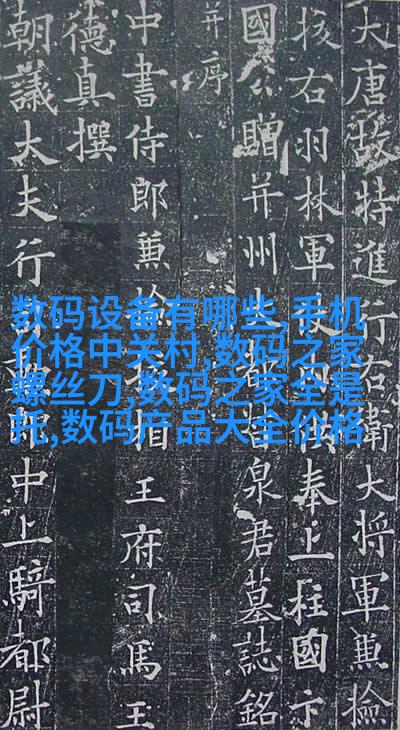 大唐故特進行右衛大將軍兼撿
挍右羽林軍供奉上柱國卞
國公贈并州大都督泉君墓誌銘
并序
中書侍郎兼撿相王府司馬王
德真撰
朝議大夫行郎中上騎都尉
数码设备有哪些,手机
价格中关村,数码之家
螺丝刀,数码之家全是
托,数码产品大全价格